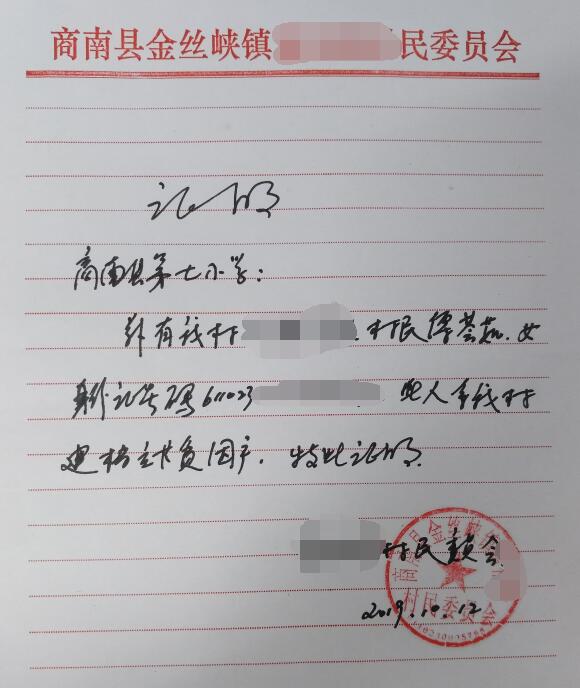 商南县金丝峡镇民委员会
证明
商南县第七小学:
兹有我村 村民 女
身份证号码611023 此人系我村
建档立卡贫困户,特此证明
村民委员会
2019.10.12
商南县金丝峡
村民委员会